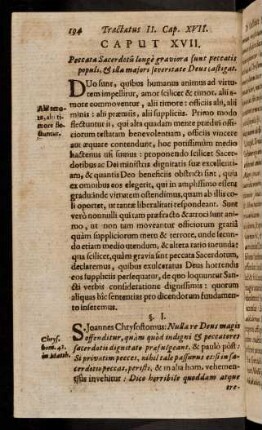 194 Tractatus II. Cap. XVII.
CAPUT XVII.
Peccata Sacerdotū longè graviora sunt peccatis
populi, & illa majore severitate Deus castigat.
DUo sunt, quibus humanus animus ad virtu-
tem impellitur, amor scilicet & timor. alii a-
more commoventur, alii timore: officiis alii, alii
minis: alii præmiis, alii suppliciis. Primo modo
flectuntur ii, qui altis quadam mente præditi offi-
ciorum testatam benevolentiam, officiis vincere
aut æquare contendunt, hoc potissimum medio
hactenus usi sumus: proponendo scilicet Sacer-
dotibus ac Dei ministris dignitatis suæ excellenti-
am, & quantis Deo beneficiis obstricti sint, quia
ex omnibus eos elegerit, qui in amplissimo essent
gradu: unde virtutem ostendissent, quam ab illis co-
li oportet, ut tantæ liberalitati respondeant. Sunt
verò nonnulli quidam præfracto & atroci sunt ani-
mo, ut non tam moveantur officiorum gratiâ
quàm suppliciorum metu & terrore, unde secun-
do etiam medio utendum, & altera ratio ineunda:
qua scilicet, quàm gravia sint peccata Sacerdotum,
declaremus, quibus exulceratus Deus horrendis
eos suppliciis persequatur, de quo loquuntur San-
cti verbis consideratione dignissimis: quorum
aliquas hîc sententias pro dicendorum fundamen-
to inseremus.
§. I.
S. Joannes Chrysostomus: Nulla re Deus magis
offenditur, quàm quòd indigni & peccatores
sacerdotii dignitate præfulgeant, & paulò pòst:
Si privatim pecces, nihil tale passurus es: si in sa-
cerdotio peccas, peristi, & in alia hom. vehemen-
tiùs invehitur: Dico horribile quoddam atque
tre-
Alii amo-
re, alii ti-
more fle-
ctuntur.
Chrys.
hom. 41.
in Matth.